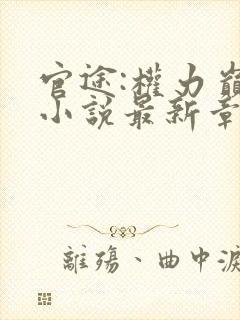 官途:權力巔
小說最新章
離殤、曲中淚